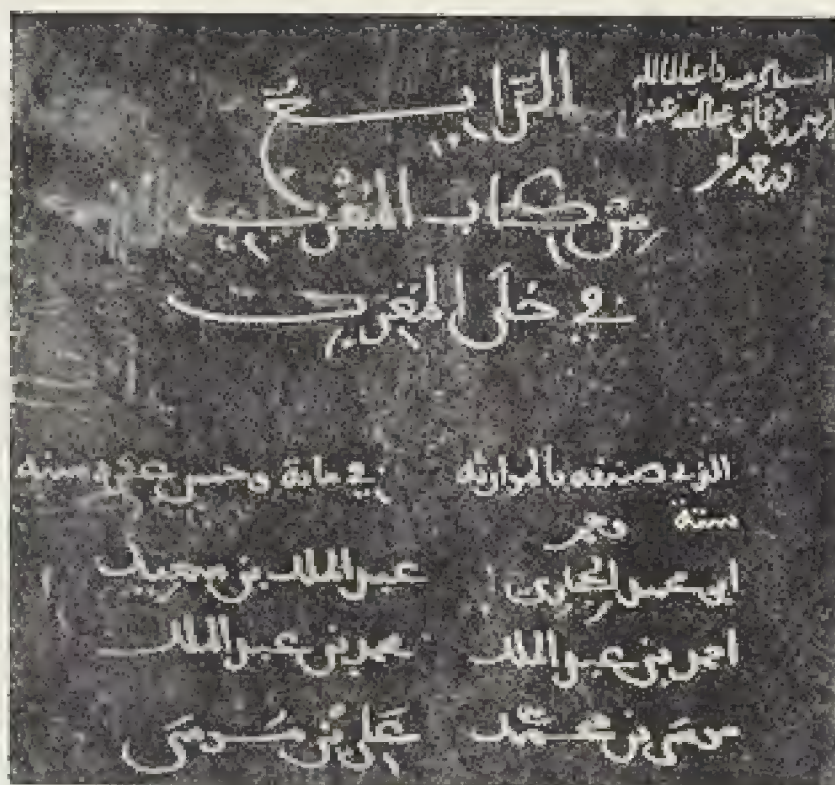 الرَّابع
من كتاب المُغْرِب
في حُلَى المَغْرِب
الذي صنفه بالموارثة في مائة وخمس عشرة سنة
ستة وهم
ابو محمد الحجاري عبد الملك بن سعيد
احمد بن عبد الملك محمد بن عبد الملك
موسَى بن محمّد عَلي بن مُوسَى